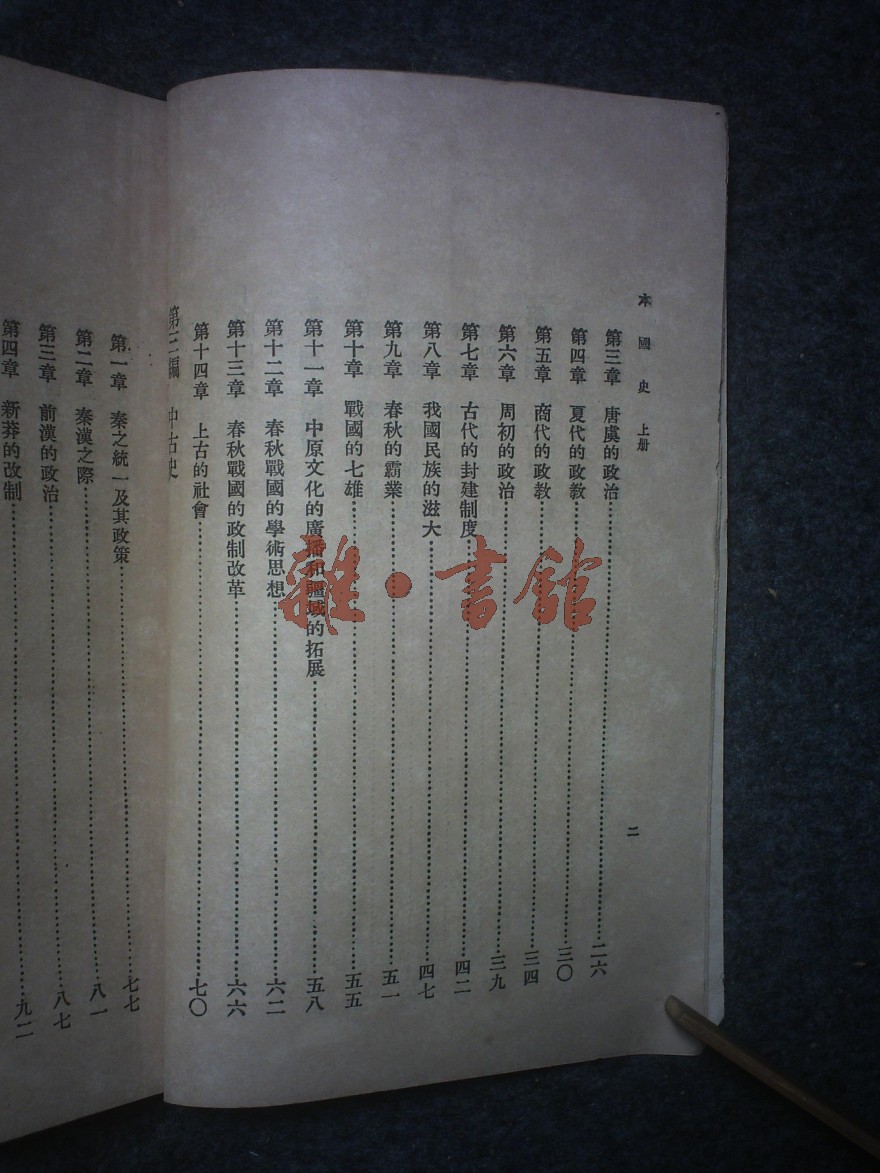 本國史 上册
二
第三章 唐虞的政治…………二六
第四章 夏代的政教…………三〇
第五章 商代的政教…………三四
第六章 周初的政治…………三九
第七章 古代的封建制度…………四二
第八章 我國民族的滋大…………四七
第九章 春秋的霸業…………五一
第十章 戰國的七雄…………五五
第十一章 中原文化的廣播和疆域的拓展…………五八
第十二章 春秋戰國的學術思想…………六二
第十三章 春秋戰國的政制改革…………六六
第十四章 上古的社會…………七〇
第三編 中古史
第一章 秦之統一及其政策…………七七
第二章 秦漢之際…………八一
第三章 前漢的政治…………八七
第四章 新莽的改制…………九二
雜·書館